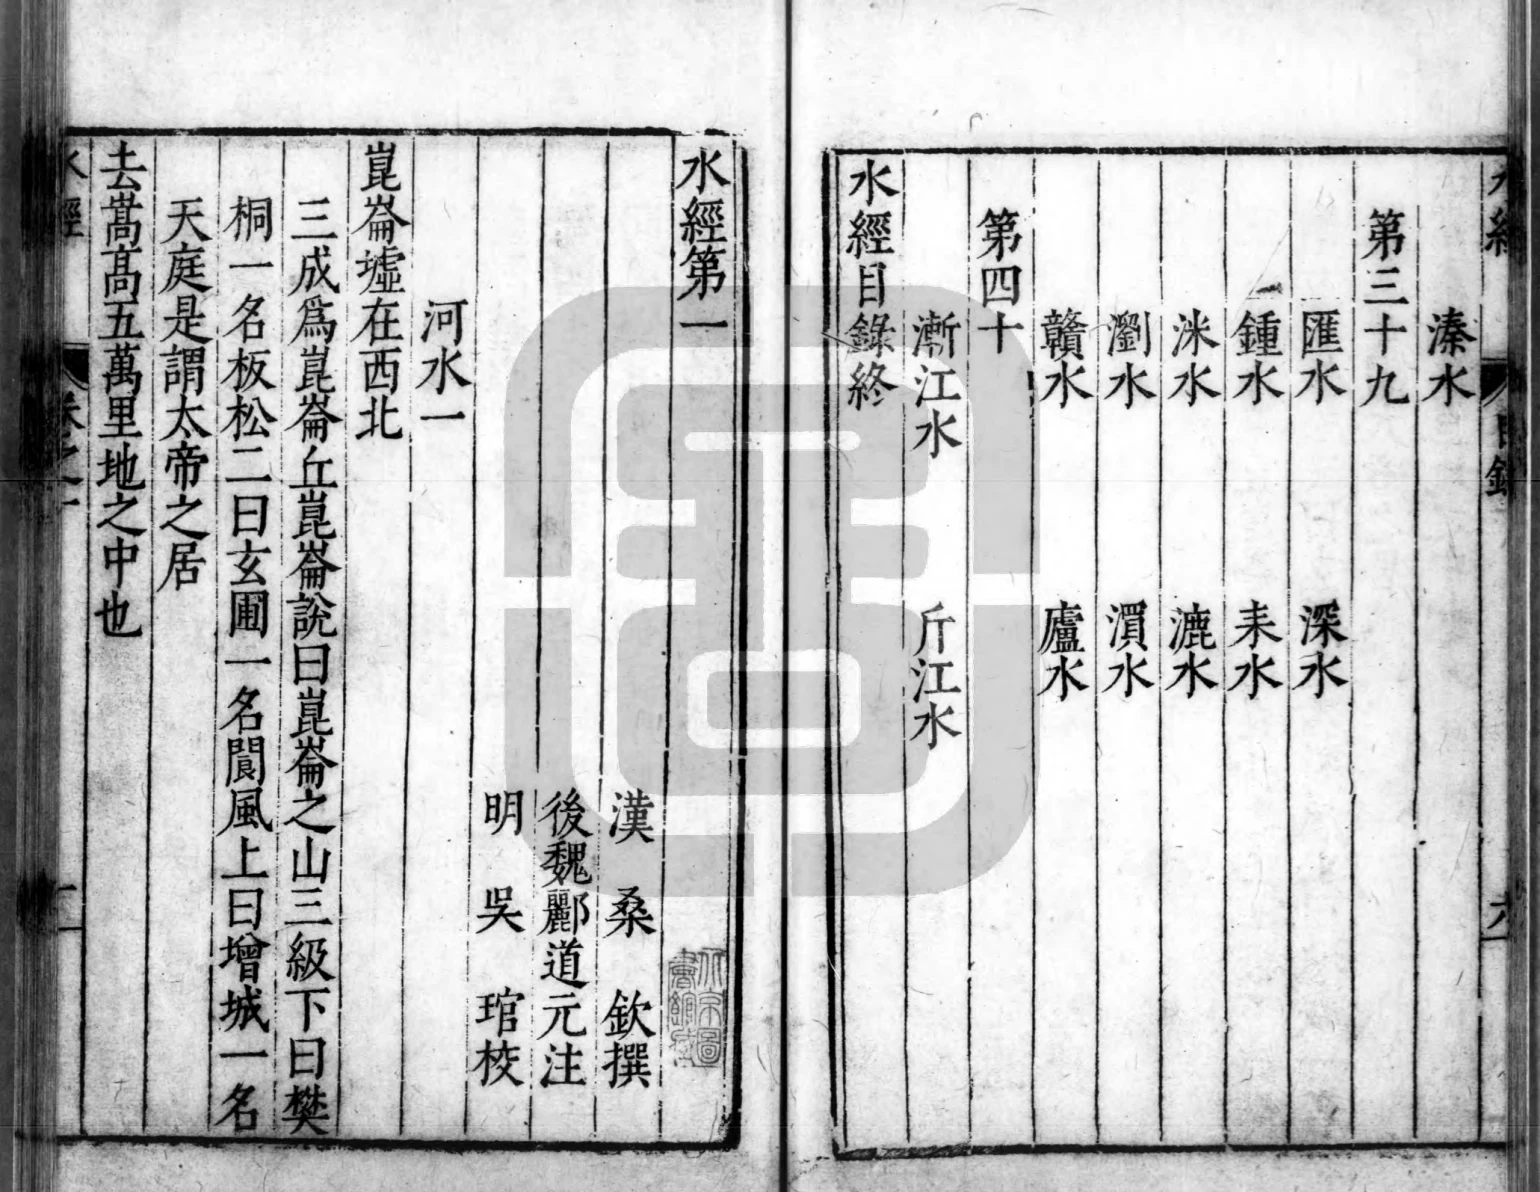 溱水
第三十九
匯水 深水
鍾水 耒水
洣水 漉水
瀏水 㵋水
贛水 廬水
第四十
漸江水 斤江水
水經目錄終
水經第一
漢 桑 欽撰
後魏酈道元注
明 吳 琯校
河水一
崑崙墟在西北
三成爲崑崙丘崑崙說曰崑崙之山三級下曰樊
桐一名板松二曰玄圃一名閬風上曰增城一名
天庭是謂太帝之居
去嵩高五萬里地之中也
水經 卷之一